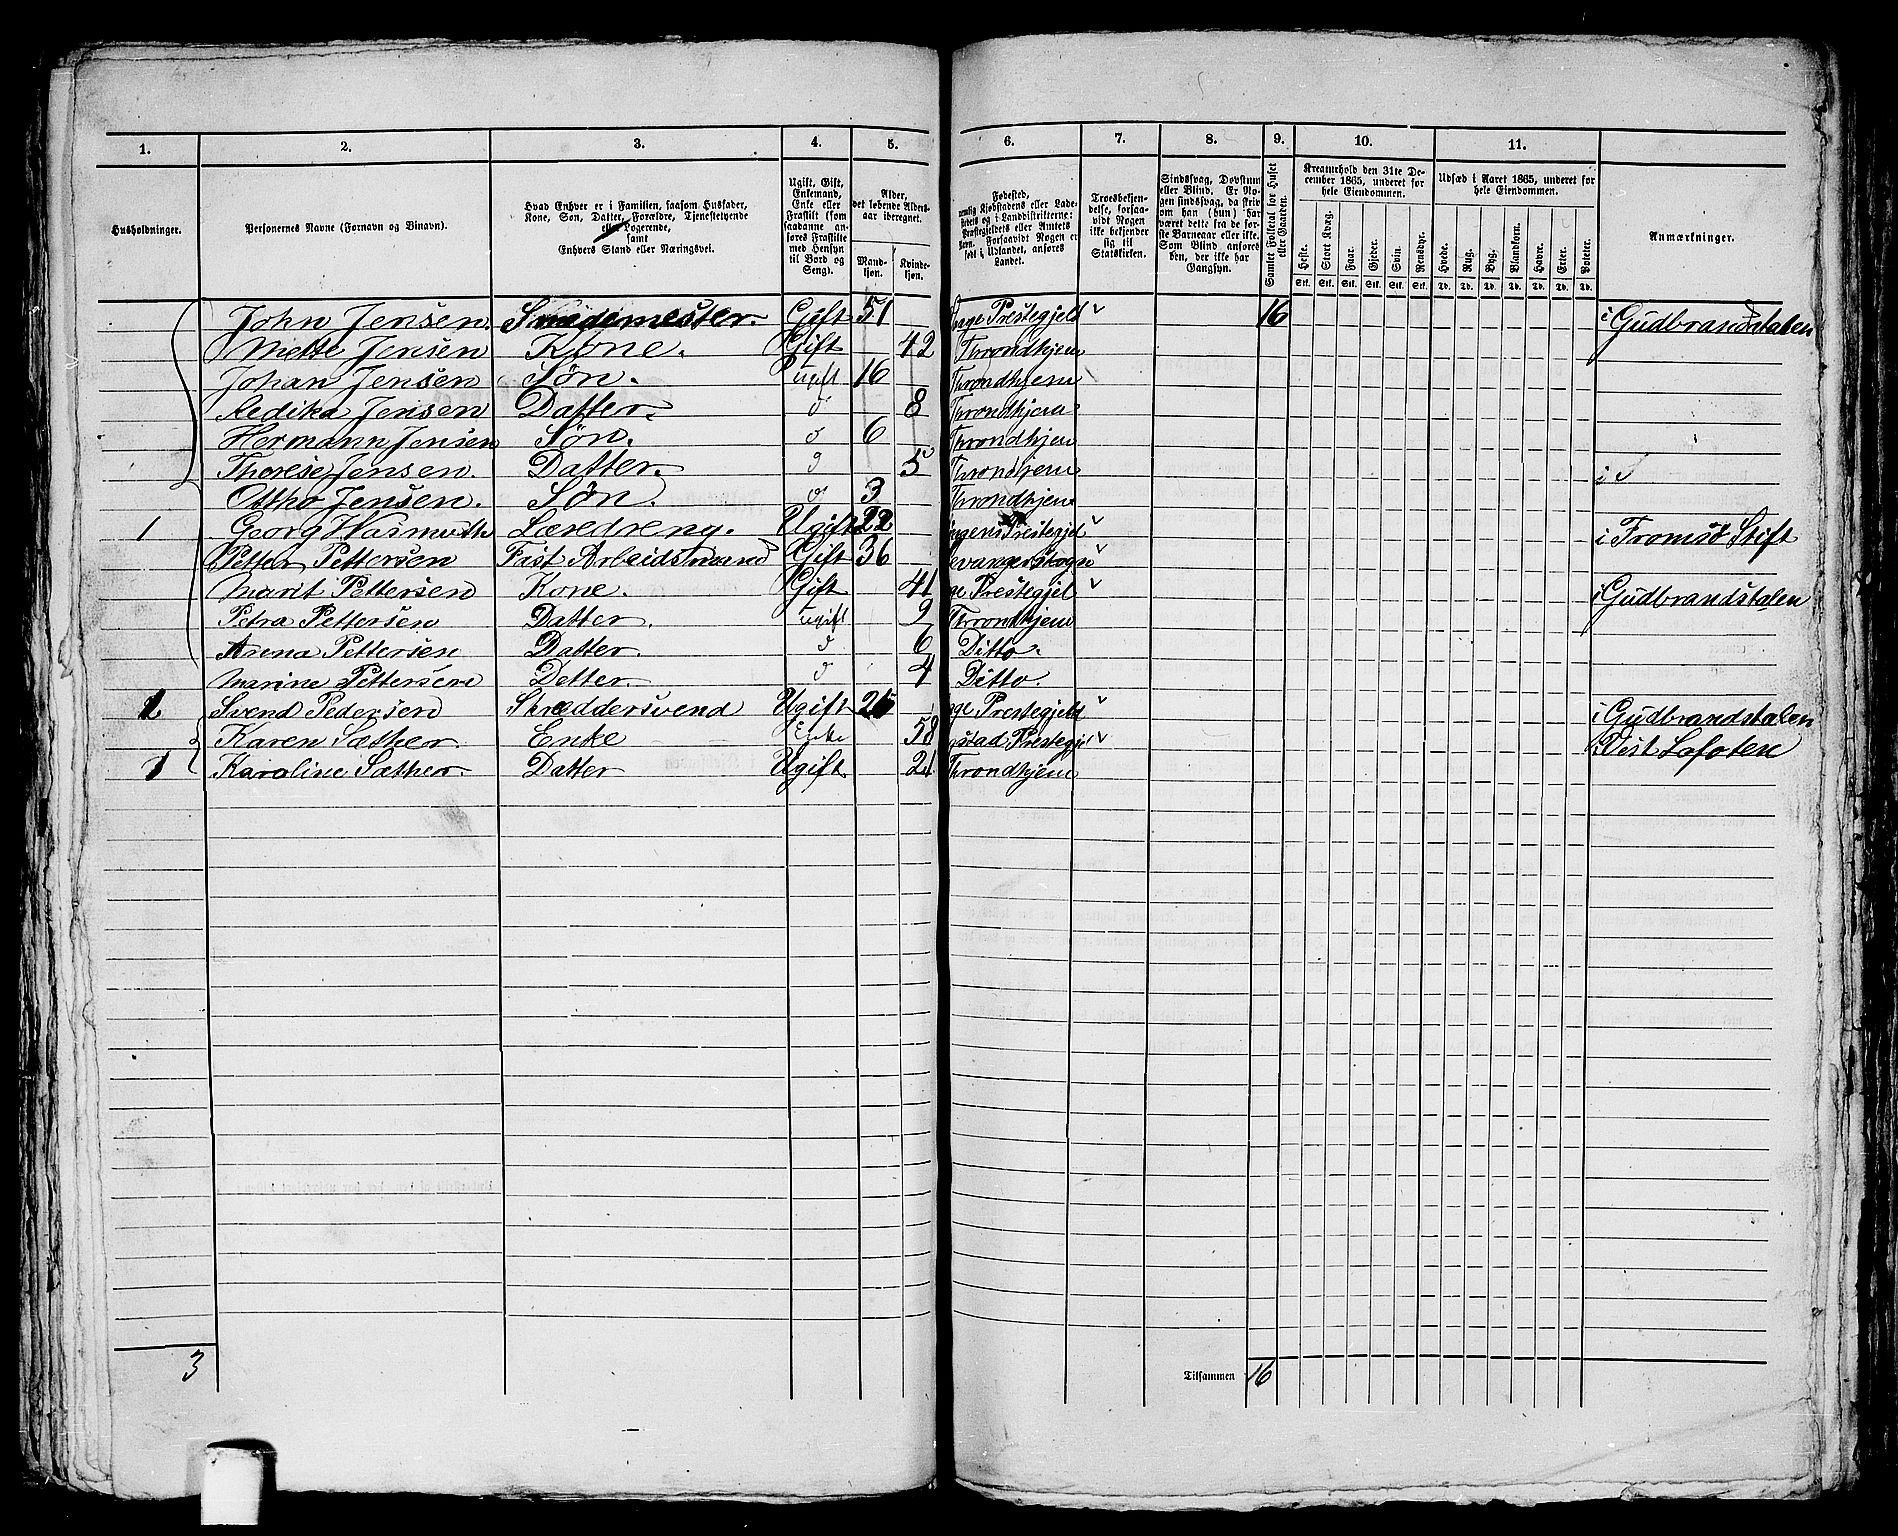 1. 2. 3. 4. 5. 6. 7. 8. 9. 10. 11.
Husholdninger.
Personernes Navne (Fornavn og Binavn).
Hvad Enhver er i Familien, saasom Husfader,
Kone, Søn, Datter, Forældre, Tjenestetyende
eller Logerende,
samt
Enhvers Stand eller Næringsvei.
Ugift, Gift,
Enkemand,
Enke eller
Fraskilt (som
saadanne an-
føres Fraskilte
med Hensyn
til Bord og
Seng).
Alder,
det løbende Alders-
aar iberegnet.
Mand-
kjøn.
Kvinde-
kjøn.
Fødested,
nemlig Kjøbstadens eller Lade-
stedets og i Landdistrikterne:
Præstegjeldets eller Amtets
Navn. Forsaavidt Nogen er
født i Udlandet, anføres
Landet.
Troesbekjen-
delse, forsaa-
vidt Nogen
ikke bekjender
sig til
Statskirken.
Sindssvag, Døvstum
eller Blind. Er No-
gen sindssvag, da skriv
om han (hun) har
været dette fra de før-
ste Barneaar eller ikke.
Som Blind anføres
den, der ikke har
Gangsyn.
Samlet Folketal for Huset
eller Gaarden.
Kreaturhold den 31te De-
cember 1865, underet for
hele Eiendommen.
Heste. Stort Kvæg. Faar. Gjeder. Svin. Rensdyr.
Stk. Stk. Stk. Stk. Stk. Stk.
Udsæd i Aaret 1865, underet for
hele Eiendommen.
Hvede. Rug. Byg. Blandkorn. Havre. Erter. Poteter.
Td. Td. Td. Td. Td. Td. Td.
Anmærkninger.
John Jensen. Smedemester. Gift 51 Prestegjeld 16 i Gudbrandstalen
Mette Jensen Kone. Gift 42 Throndhjem
Johan Jensen Søn. Ugift 16 Throndhjem
Jensen Datter. d 8 Throndhjem
Hermann Jensen Søn. d 6 Throndhjem
Therese Jensen. Datter. d 5 Throndhjem i
Ottho Jensen. Søn. d 3 Throndhjem
1 Georg Wasmuth Læredreng. Ugift 22 Prestegjel i Tromsø Stift
Petter Pettersen Fast Arbeidsmand Gift 36
Marit Pettersen Kone. Gift 41 Prestegjel i Gudbrandstalen
Petra Pettersen Datter. Ugift 9 Throndhjem
Arena Pettersen Datter. d 6 Ditto.
Marine Pettersen Detter. d 4 Ditto.
1 Svend Pedersen Skræddersvend Ugift 26 Prestegjeld i Gudbrandstalen
Karen Sæther. Enke Enke 58 Prestegjel Vest Lofoten
1 Karoline Sæther. Datter Ugift. 21 Throndhjem
3
Tilsammen 16